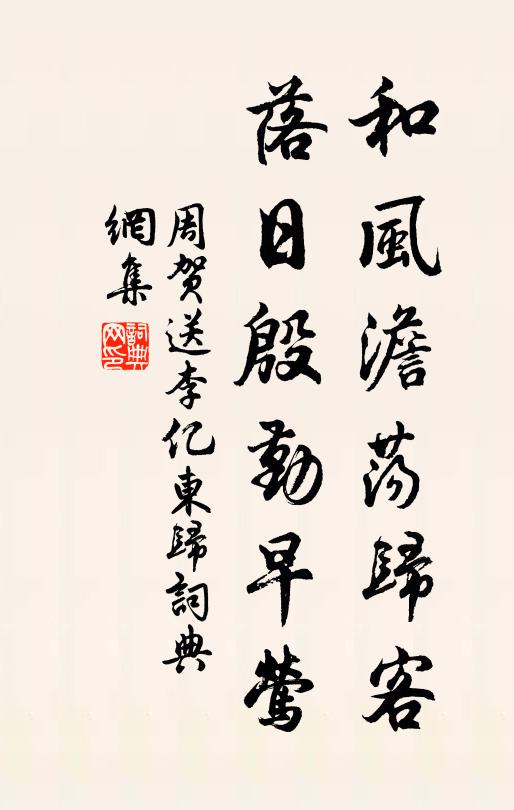 和風澹荡歸客
落日殷勤早鶯
周贺送李亿東歸詞典
網集
詞典网印